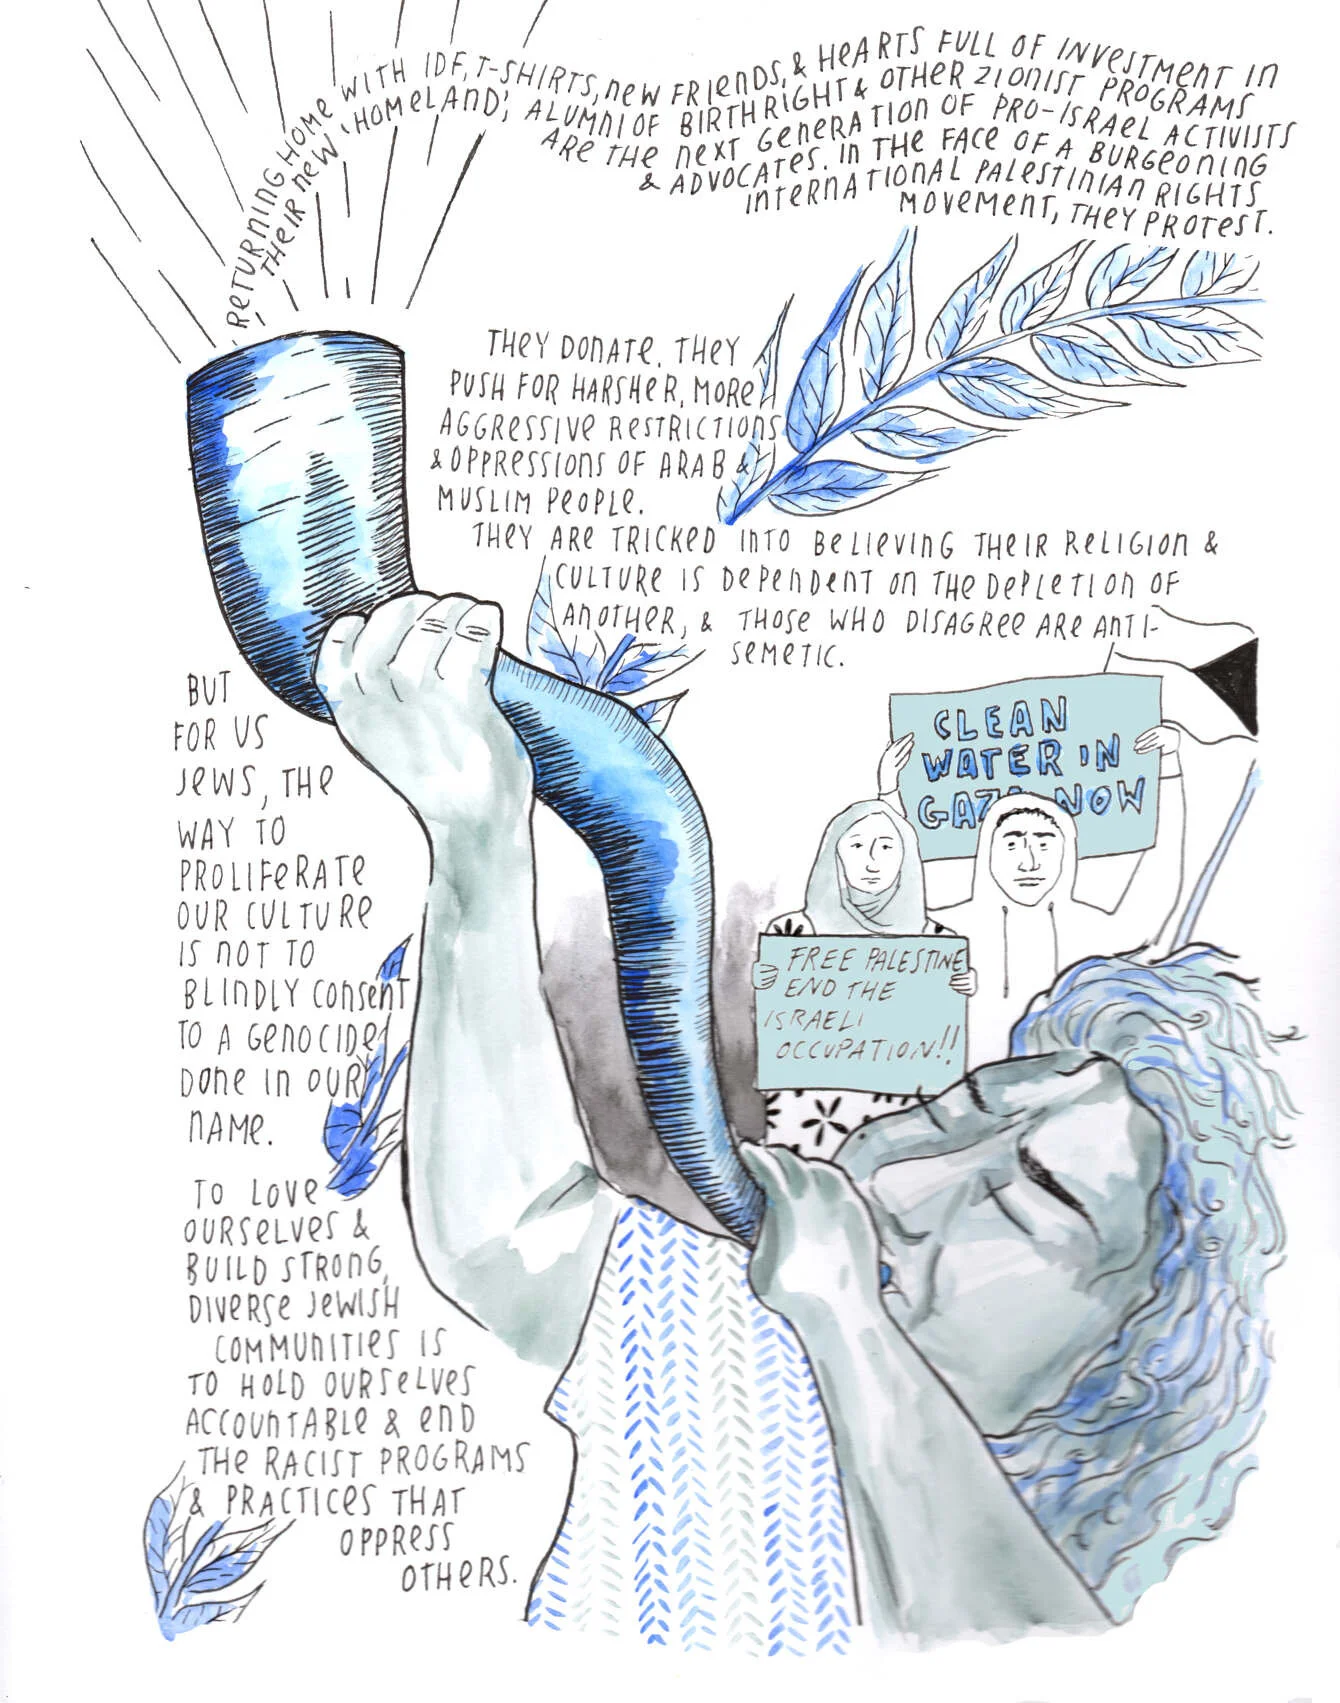 RETURNING HOME WITH IDF, T-SHIRTS, NEW FRIENDS, & HEARTS FULL OF INVESTMENT IN
THEIR NEW 'HOMELAND', ALUMNI OF BIRTHRIGHT & OTHER ZIONIST PROGRAMS
ARE THE NEXT GENERATION OF PRO-ISRAEL ACTIVISTS
& ADVOCATES. IN THE FACE OF A BURGEONING
INTERNATIONAL PALESTINIAN RIGHTS
MOVEMENT, THEY PROTEST.
THEY DONATE, THEY
PUSH FOR HARSHER, MORE
AGGRESSIVE RESTRICTIONS
& OPPRESSIONS OF ARAB &
MUSLIM PEOPLE.
THEY ARE TRICKED INTO BELIEVING THEIR RELIGION &
CULTURE IS DEPENDENT ON THE DEPLETION OF
ANOTHER, & THOSE WHO DISAGREE ARE ANTI-
SEMETIC.
CLEAN
WATER IN
GAZA NOW
FREE PALESTINE
END THE
ISRAELI
OCCUPATION!!
BUT
FOR US
JEWS, THE
WAY TO
PROLIFERATE
OUR CULTURE
IS NOT TO
BLINDLY CONSENT
TO A GENOCIDE
DONE IN OUR
NAME.
TO LOVE
OURSELVES &
BUILD STRONG,
DIVERSE JEWISH
COMMUNITIES IS
TO HOLD OURSELVES
ACCOUNTABLE & END
THE RACIST PROGRAMS
& PRACTICES THAT
OPPRESS
OTHERS.